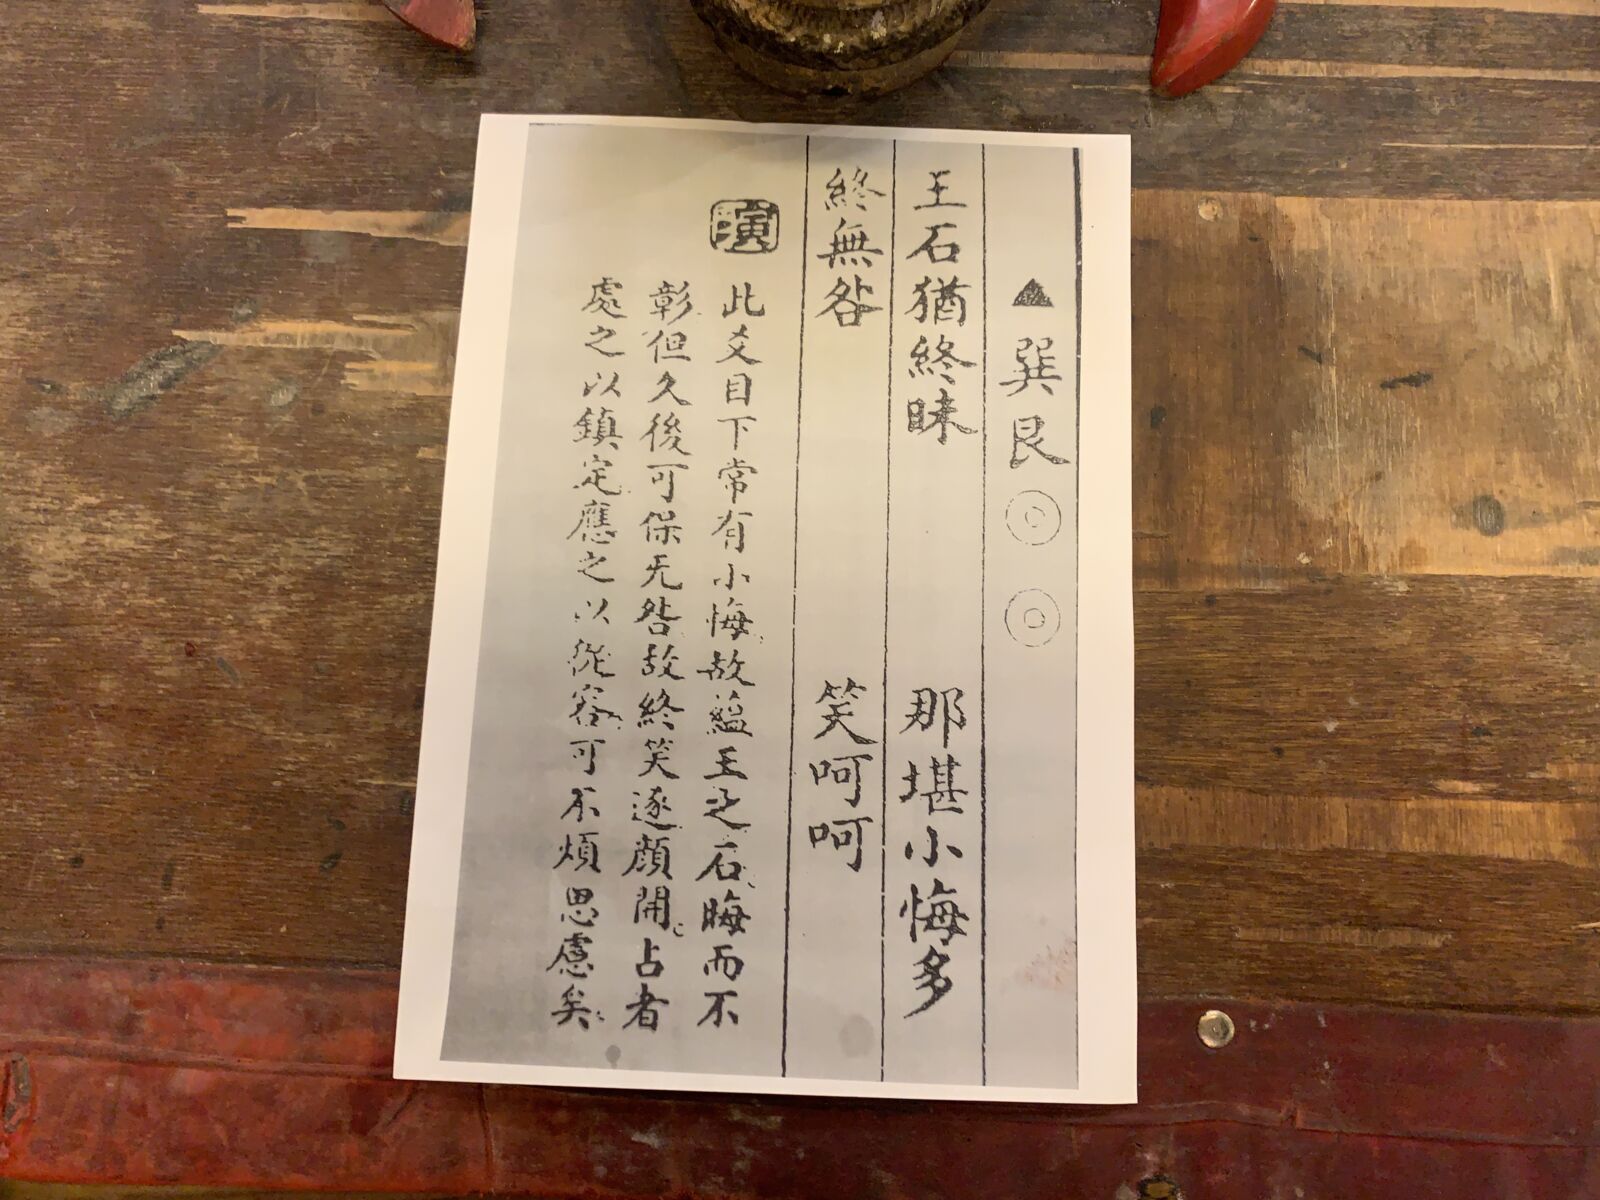 ▲巽艮◎◎
王石猶終昧 那堪小悔多
終無咎 笑呵呵
演
此爻目下常有小悔故蘊王之石晦而不
彰但久後可保无咎故終笑逐顔開占者
處之以鎮定應之以從容可不煩思慮矣